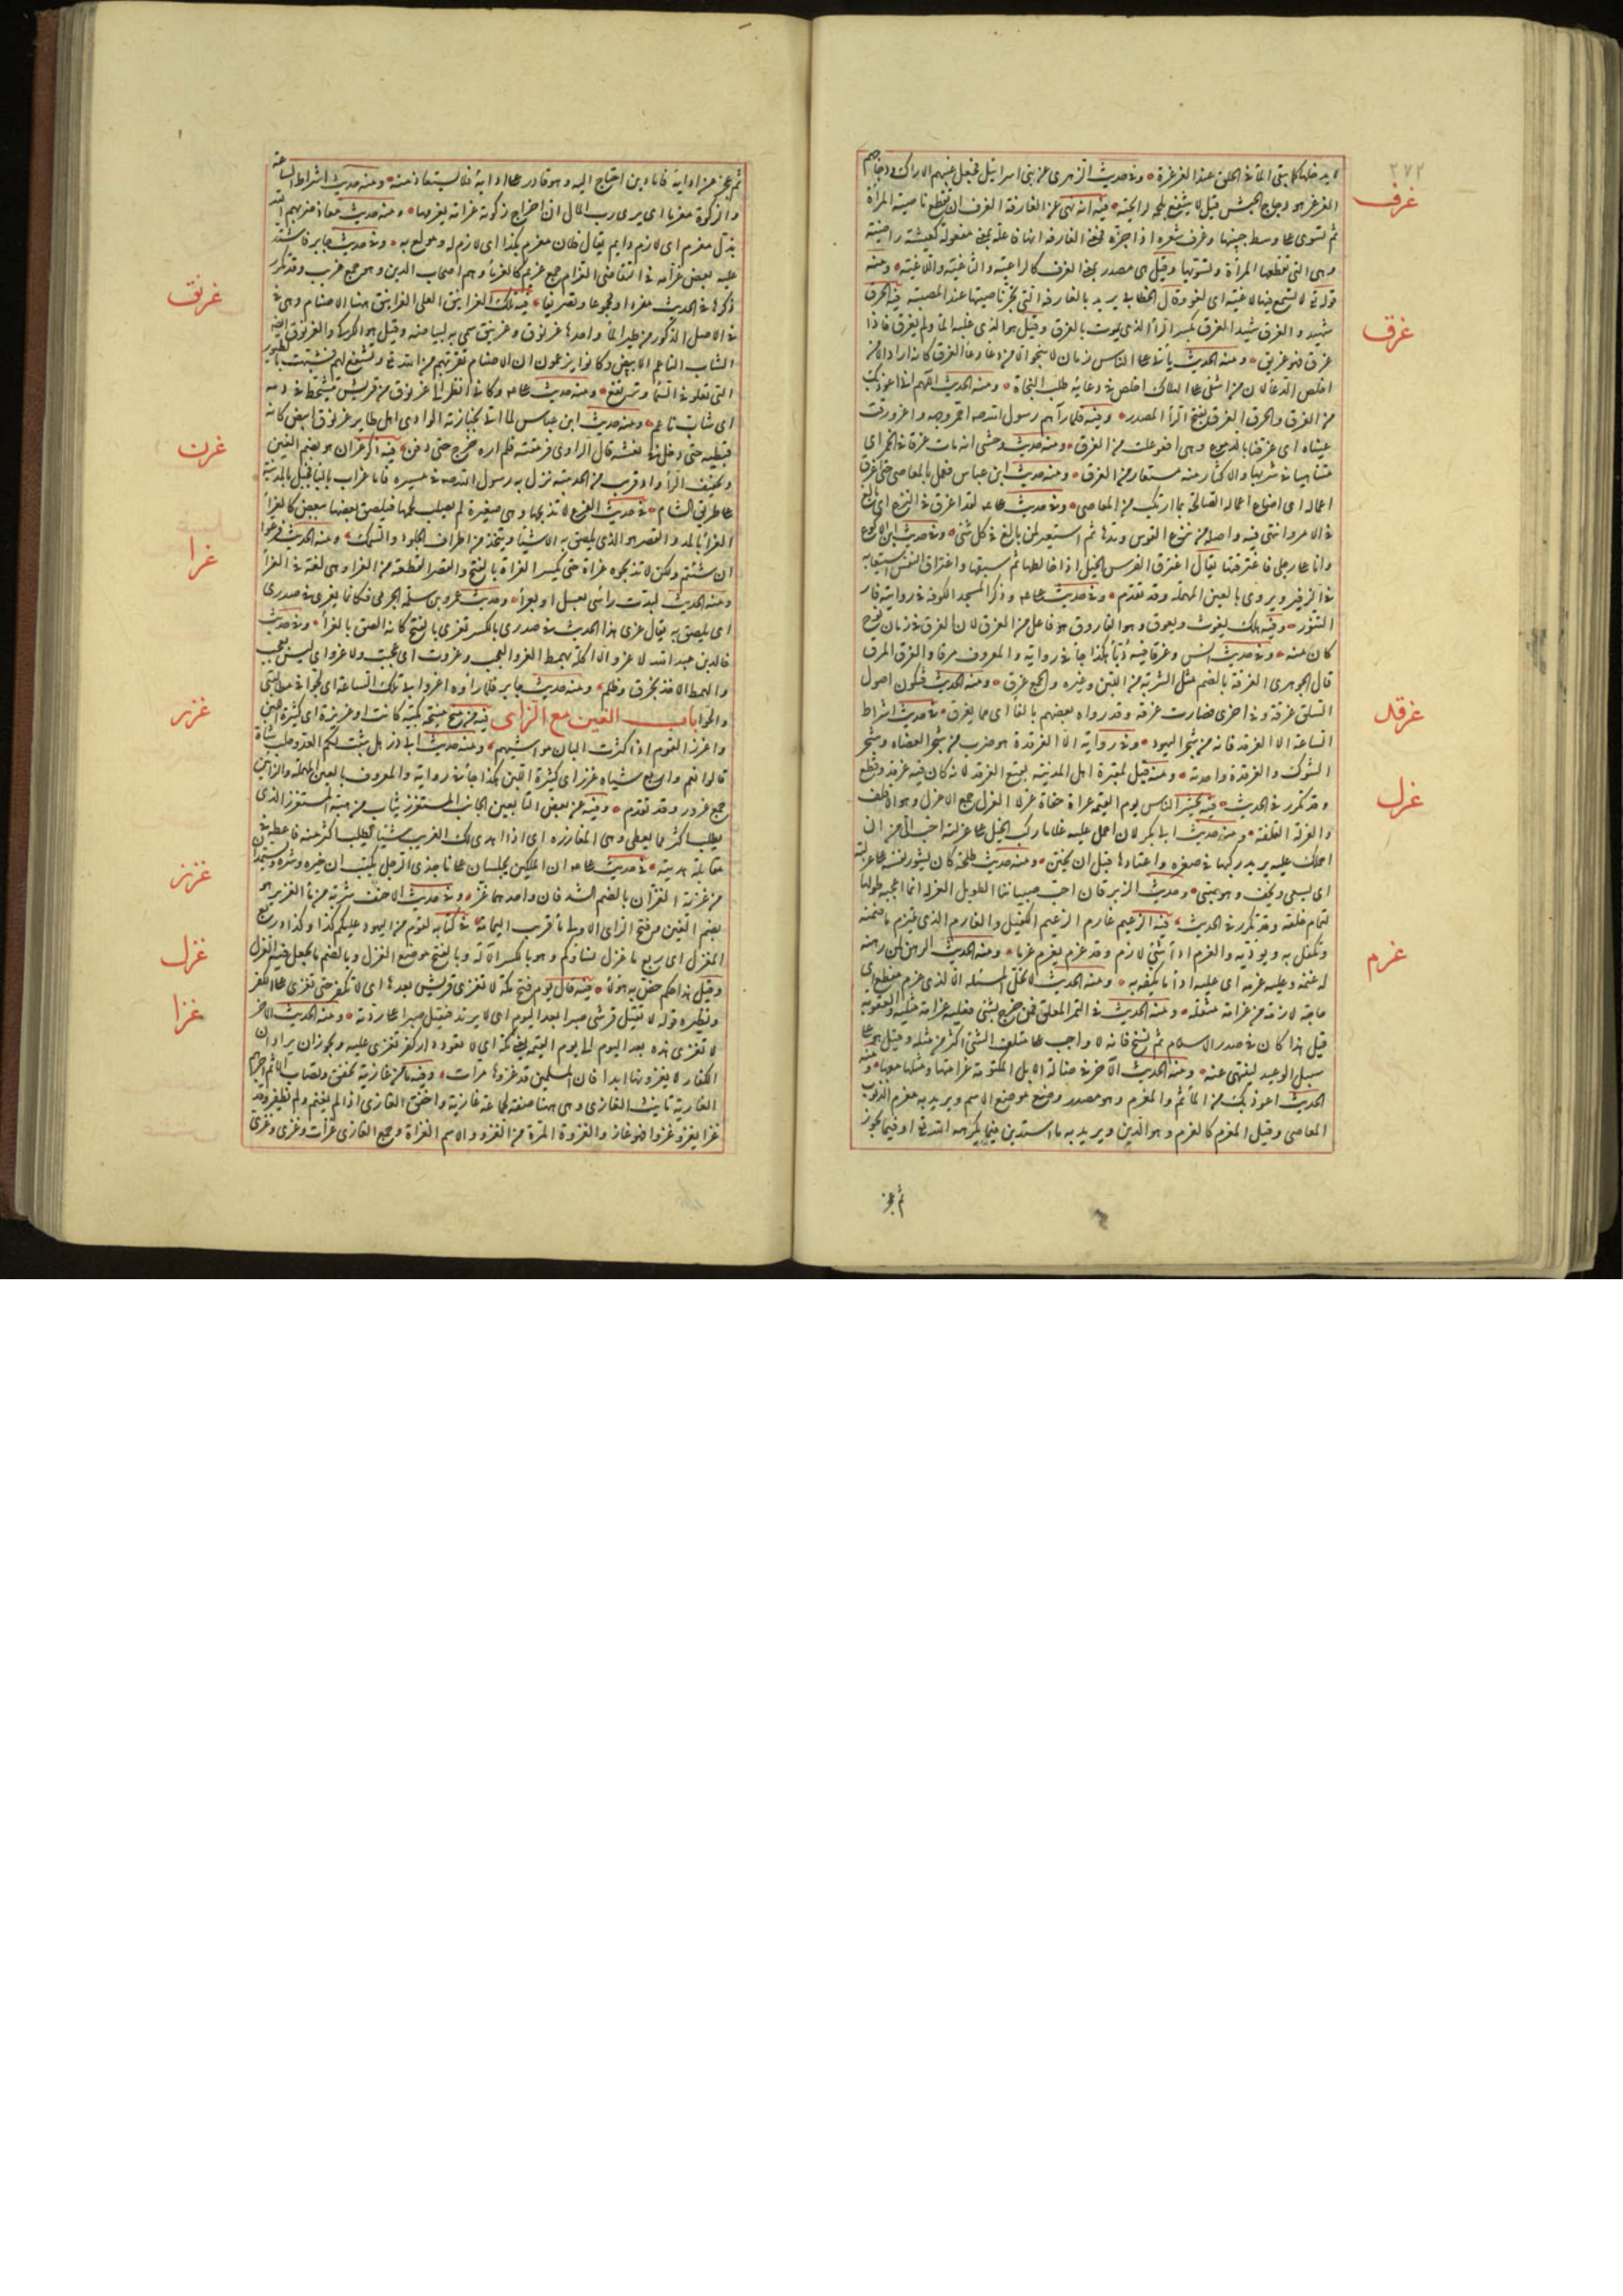 ٢٧٢
غرف
لا يدخلها كما يبقى الماء في الحلق عند الغرغرة وفي حديث الزهري عن بني اسرائيل فجعل عنبهم الاراك ودجاجهم
الغرغر هو دجاج الحبش قيل لا ينتفع بلحمه لرائحته فيه انه نهى عن الغارفة الغرف ان تقطع ناصية المرأة
ثم تسوى على وسط جبينها وغرف شعره اذا جزه فمعنى الغارفة انها فاعلة بمعنى مفعولة كعيشة راضية
وهي التي تقطعها المرأة وتسويها وقيل هي مصدر بمعنى الغرف كالراغية والثاغية واللاغية ومنه
قوله تعالى لا تسمع فيها لاغية اي لغو وقال الخطابي يريد بالغارفة التي تجز ناصيتها عند المصيبة فيه الحرق
غرق
شهيد والغرق شهيد الغرق بكسر الراء الذي يموت بالغرق وقيل هو الذي غلبه الماء ولم يغرق فاذا
غرق فهو غريق ومنه الحديث يأتي على الناس زمان لا ينجو الا من دعا دعاء الغرق كانه اراد الا من
اخلص الدعاء لان من اشفى على الهلاك اخلص في دعائه طلب النجاة ومنه الحديث اللهم اني اعوذ بك
من الغرق والحرق الغرق بفتح الراء المصدر وفيه فلما رآهم رسول الله احمر وجهه واغرورقت
عيناه اي غرقتا بالدموع وهي افعوعلت من الغرق ومنه حديث وحشي انه مات غرقا في الخمر اي
متناهيا في شربها والاكثار منه مستعار من الغرق ومنه حديث ابن عباس فعمل بالمعاصي حتى اغرق
اعماله اي اضاع اعماله الصالحة بما ارتكب من المعاصي وفي حديث علي لقد اغرق في النزع اي بالغ
في الامر وانتهى فيه واصله من نزع القوس ومدها ثم استعير لمن بالغ في كل شئ وفي حديث ابن الاكوع
وانا على رجلي فاغترقتها يقال اغترق الفرس الخيل اذا خالطها ثم سبقها واغتراق النفس استيعابه
في الزفير ويروى بالعين المهملة وقد تقدم وفي حديث علي وذكر مسجد الكوفة في زاويته فار
التنور وفيه هلك يغوث ويعوق وهو الغاروق هو فاعول من الغرق لان الغرق في زمان نوح
كان منه وفي حديث انس وغرقا فيه دباء هكذا جاء في رواية والمعروف مرقا والغرق المرق
قال الجوهري الغرقة بالضم مثل الشربة من اللبن وغيره والجمع غرق ومنه الحديث فتكون اصول
السلق غرقة وفي اخرى فصارت غرقة وقد رواه بعضهم بالفاء اي مما يغرف في حديث اشراط
غرقد
الساعة الا الغرقد فانه من شجر اليهود وفي رواية الا الغرقدة هو ضرب من شجر العضاه وشجر
الشوك والغرقدة واحدته ومنه قيل لمقبرة اهل المدينة بقيع الغرقد لانه كان فيه غرقد وقطع
وقد تكرر في الحديث فيه يحشر الناس يوم القيمة عراة حفاة غرلا الغرل جمع الاغرل وهو الاقلف
غرل
والغرلة القلفة ومنه حديث ابي بكر لان احمل عليه غلاما ركب الخيل على غرلته احب الي من ان
احملك عليه يريد ركبها في صغره واعتادها قبل ان يختن ومنه حديث طلحة كان يشور نفسه على غرلته
اي يسعى ويخف وهو صبي وحديث الزبرقان احب صبياننا الطويل الغرلة انما اعجبه طولها
لتمام خلقه وقد تكرر في الحديث فيه الزعيم غارم الزعيم الكفيل والغارم الذي يلتزم ما ضمنه
غرم
وتكفل به ويؤديه والغرم اداء شئ لازم وقد غرم يغرم غرما ومنه الحديث الرهن لمن رهنه
له غنمه وعليه غرمه اي عليه اداء ما يفكه به ومنه الحديث لا تحل المسئلة الا لذي غرم مفظع اي
حاجة لازمة من غرامة مثقلة ومنه الحديث في الثمر المعلق فمن خرج بشئ فعليه غرامة مثليه والعقوبة
قيل هذا كان في صدر الاسلام ثم نسخ فانه لا واجب على متلف الشئ اكثر من مثله وقيل هو على
سبيل الوعيد لينتهى عنه ومنه الحديث الآخر في ضالة الابل المكتومة غرامتها ومثلها معها ومنه
الحديث اعوذ بك من المأثم والمغرم وهو مصدر وضع موضع الاسم ويريد به مغرم الذنوب
المعاصي وقيل المغرم كالغرم وهو الدين ويريد به ما استدين فيما يكرهه الله تعالى او فيما يجوز
ثم عجز
ثم عجز عن ادائه فاما دين احتاج اليه وهو قادر على ادائه فلا يستعاذ منه ومنه حديث اشراط الساعة
والزكوة مغرما اي يرى رب المال ان اخراج زكوته غرامة يغرمها ومنه حديث معاذ ضربهم الله
بذل مغرم اي لازم دايم يقال فلان مغرم بكذا اي لازم له ومولع به وفي حديث جابر فاشتد
عليه بعض غرامه في التقاضي الغرام جمع غريم كالغرماء وهم اصحاب الدين وهو جمع غريب وقد تكرر
غرنق
ذكرها في الحديث مفردا ومجموعا وتصريفا فيه تلك الغرانيق العلى الغرانيق ههنا الاصنام وهي في
في الاصل الذكور من طير الماء واحدها غرنوق وغرنيق سمي به لبياضه وقيل هو الكركي والغرنوق ايضا
الشاب الناعم الابيض وكانوا يزعمون ان الاصنام تقربهم من الله تعالى وتشفع لهم فشبهت بالطيور
التي تعلو في السماء وترتفع ومنه حديث علي فكاني انظر الى غرنوق من قريش يتشحط في دمه
اي شاب ناعم ومنه حديث ابن عباس لما اتي بجنازته الوادي اقبل طاير غرنوق ابيض كانه
غرن
قبطية حتى دخل في نعشه قال الراوي فرمقته فلم اره خرج حتى دفن فيه ذكر غران هو بضم الغين
وتخفيف الراء واد قريب من الحديبية نزل به رسول الله في مسيره فاما غراب بالباء فجبل بالمدينة
على طريق الشام في حديث الفرع لا تذبحها وهي صغيرة لم يصلب لحمها فيلصق بعضها ببعض كالغراء
غرا
الغراء بالمد والقصر هو الذي يلصق به الاشياء ويتخذ من اطراف الجلود والسمك ومنه الحديث فرعوا
ان شئتم ولكن لا تذبحوه غراة حتى يكبر الغراة بالفتح والقصر القطعة من الغرا وهي لغة في الغراء
ومنه الحديث لبدت رأسي بغسل او بغراء وحديث عمرو بن سلمة الجرمي فكانما يغرى في صدري
اي يلصق به يقال غري هذا الحديث في صدري بالكسر يغرى بالفتح كانه الصق بالغراء وفي حديث
خالد بن عبد الله لا غرو الا اكلة بهمط الغرو العجب وغروت اي عجبت ولا غرو اي ليس بعجب
والهمط الاخذ بخرق وظلم ومنه حديث جابر فلما رأوه اغروا بي تلك الساعة اي لجوا في مطالبتي
غزر
والحوا باب الغين مع الزاى فيه من منح منيحة لبن بكيئة كانت او غزيرة اي كثيرة اللبن
واغزر القوم اذا كثرت البان مواشيهم ومنه حديث ابي ذر هل يثبت لكم العدو حلب شاة
قالوا نعم واربع شياه غزر اي كثيرة اللبن هكذا جاء في رواية والمعروف بالعين المهملة والزايين
جمع عزوز وقد تقدم وفيه عن بعض التابعين الجانب المستغزر يثاب من هبته المستغزر الذي
يطلب اكثر مما يعطي وهي المغازرة اي اذا اهدى لك الغريب شيئا يطلب اكثر منه فاعطه في
غزز
مقابلة هديته في حديث علي ان الملكين يجلسان على ناجذي الرجل يكتبان خيره وشره ويستمدان
من غزيه الغزان بالضم الشدقان واحدهما غز وفي حديث الاحنف شربة من ماء الغزيز هو
بضم الغين وفتح الزاى الاولى ماء قرب اليمامة في كتابه لقوم من اليهود عليكم كذا وكذا وربع
غزل
المغزل اي ربع ما غزل نساؤكم وهو بالكسر الآلة وبالفتح موضع الغزل وبالضم ما يجعل فيه الغزل
غزا
وقيل هذا حكم خص به هؤلاء فيه قال يوم فتح مكة لا تغزى قريش بعدها اي لا تكفر حتى تغزى على الكفر
ونظيره قوله لا يقتل قرشي صبرا بعد اليوم اي لا يرتد فيقتل صبرا على ردته ومنه الحديث الآخر
لا تغزى هذه بعد اليوم الى يوم القيمة يعني مكة اي لا تعود دار كفر تغزى عليه ويجوز ان يراد ان
الكفار لا يغزونها ابدا فان المسلمين قد غزوها مرات وفيه ما من غازية تخفق وتصاب الا تم اجرهم
الغازية تأنيث الغازي وهي ههنا صفة لجماعة غازية واخفق الغازي اذا لم يغنم ولم يظفر وقد
غزا يغزو غزوا فهو غاز والغزوة المرة من الغزو والاسم الغزاة وجمع الغازي غزاة وغزى وغزي